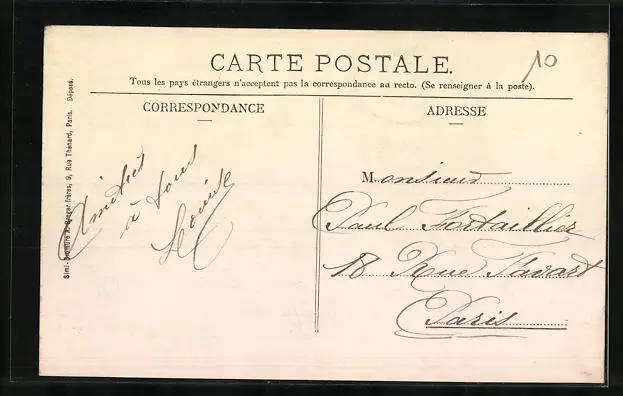 CARTE POSTALE.
10
Tous les pays étrangers n'acceptent pas la correspondance au recto. (Se renseigner à la poste).
CORRESPONDANCE
Amitiés
à tous
Louise
ADRESSE
Monsieur
Paul Fortaillier
18 Rue Favart
Paris
Simi- A. Breger frères, 9, Rue Thénard, Paris. Déposé.